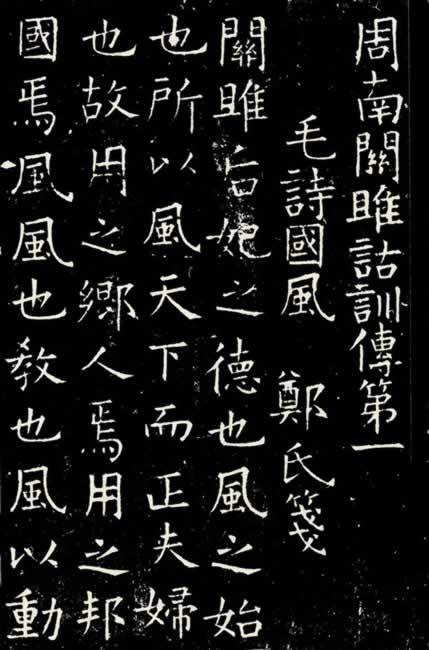 周南關雎詁訓傳第一
毛詩國風 鄭氏箋
關雎后妃之德也風之始
也所以風天下而正夫婦
也故用之鄉人焉用之邦
國焉風風也敎也風以動